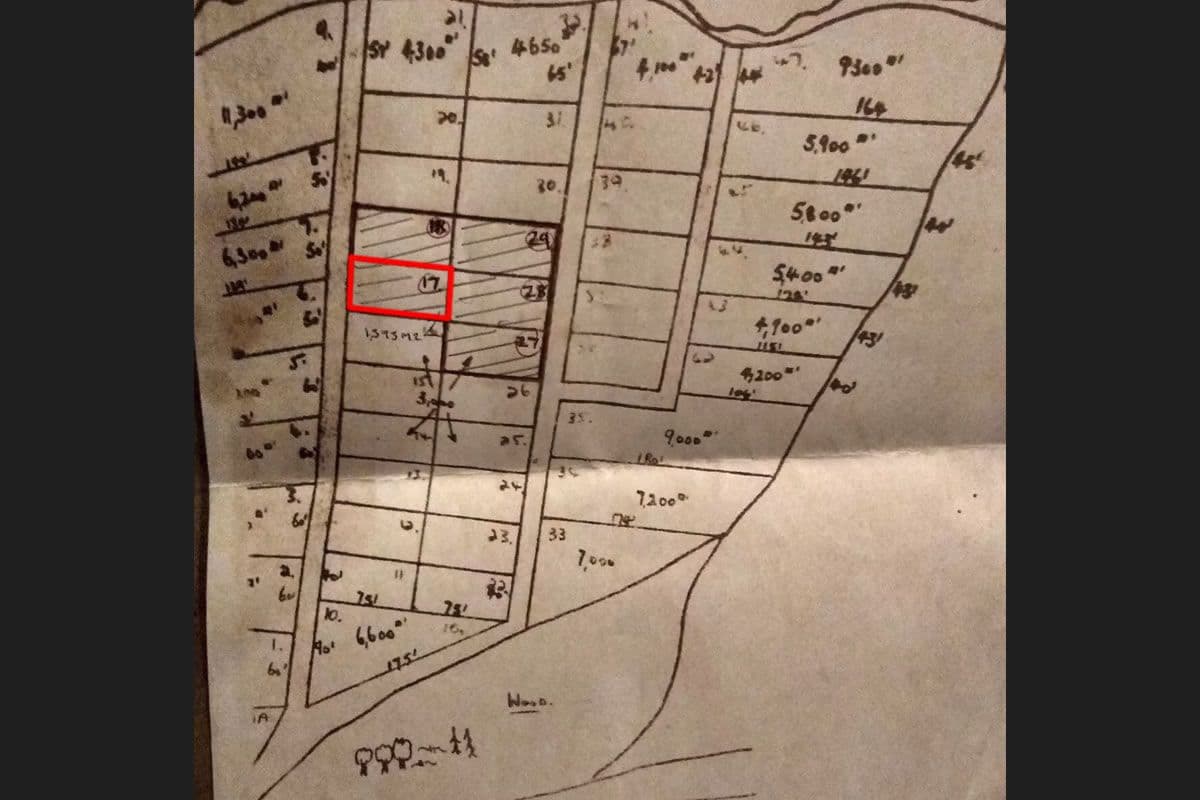 9.
40'
11,300 □'
140'
8.
50'
6,200 □'
7.
50'
6,300 □'
6.
50'
5.
60'
60'
3.
60'
2.
60
1.
60'
1A
21.
4,300 □'
58'
4650 □'
65'
20.
31.
19.
30.
18
29
17
28
1,393 M2
16
27
15
3,000
26
14
25.
13.
24.
12.
23.
40'
11
22
75'
75'
10.
6,600 □'
90'
175'
41
67'
4,100 □'
42'
40.
39.
38
47.
44'
9300 □'
164
46.
5,900 □'
146'
45'
45
5,800 □'
143'
40'
44.
5,400 □'
128'
43'
43
4,900 □'
115'
43'
42
4,200 □'
104'
40'
35.
9,000 □'
180'
34
7,200 □'
174'
33
7,000
Wood.